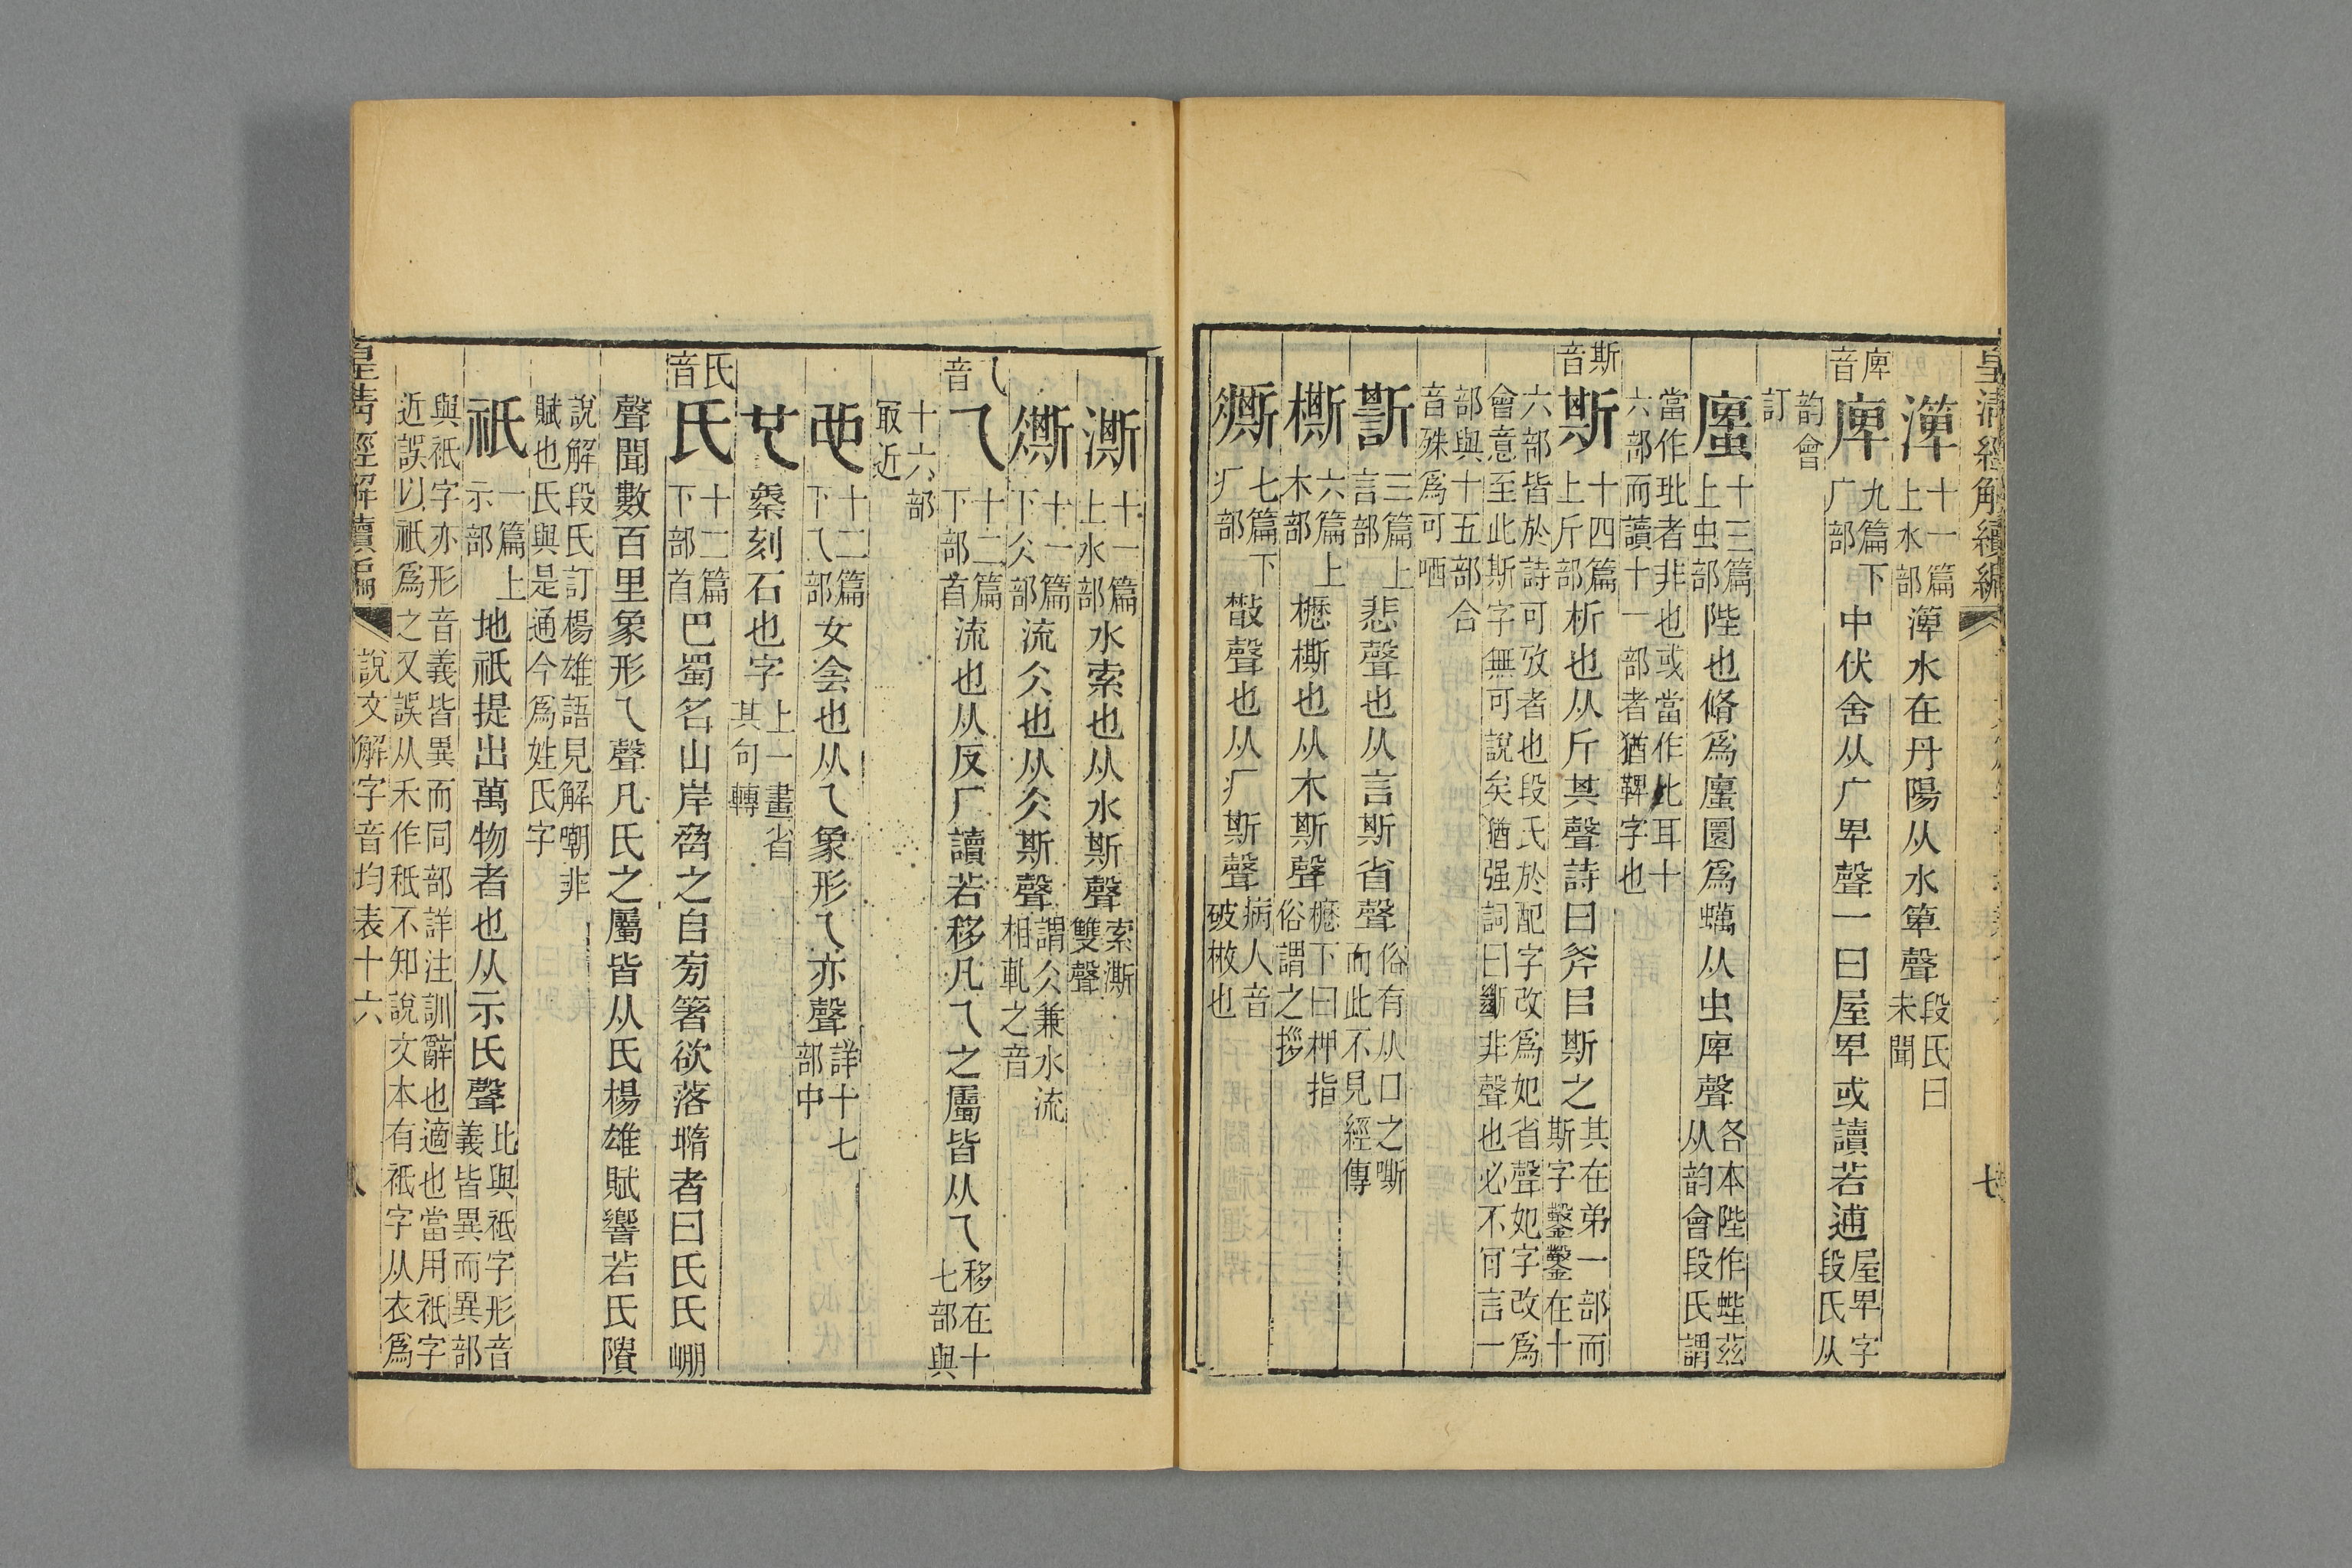 皇清經解續編 七
渒 十一篇上水部 渒水在丹陽从水箄聲 段氏曰未聞
庳音 庳 九篇下广部 中伏舍从广卑聲一曰屋卑或讀若逋 屋卑字段氏从
韵會訂
蠯 十三篇上虫部 陛也脩爲蠯圜爲蠇从虫庳聲 各本陛作蜌茲从韵會段氏謂
當作玭者非也或當作比耳十六部而讀十一部者猶鞞字也
斯音 斯 十四篇上斤部 析也从斤其聲詩曰斧㠯斯之 其在弟一部而斯字鑿鑿在十
六部皆於詩可攷者也段氏於配字改爲妃省聲妃字改爲會意至此斯字無可說矣猶强詞曰斷非聲也必不肎言一
部與十五部合音殊爲可哂
誓 三篇上言部 悲聲也从言斯省聲 俗有从口之嘶而此不見經傳
㯕 六篇上木部 櫪㯕也从木斯聲 櫪下曰柙指俗謂之拶
𤺊 七篇下疒部 㪔聲也从疒斯聲 病人音破㪔也
澌 十一篇上水部 水索也从水斯聲 索澌雙聲
𣩠 十一篇下仌部 流仌也从仌斯聲 謂仌兼水流相軋之音
乁音 乁 十二篇下部首 流也从反厂讀若移凡乁之屬皆从乁 移在十七部與
十六部冣近
也 十二篇下乁部 女侌也从乁象形乁亦聲 詳十七部中
𠃟 秦刻石也字 上一畫省其句轉
氏音 氏 十二篇下部首 巴蜀名山岸脅之𠂤旁箸欲落墮者曰氏氏崩
聲聞數百里象形乁聲凡氏之屬皆从氏楊雄賦響若氏隤
說解段氏訂楊雄語見解嘲非賦也氏與是通今爲姓氏字
祇 一篇上示部 地祇提出萬物者也从示氏聲 比與祗字形音義皆異而異部
與祇字亦形音義皆異而同部詳注訓辭也適也當用祇字近誤以祇爲之又誤从禾作秖不知說文本有衹字从衣爲
皇清經解續編 說文解字音均表十六 八